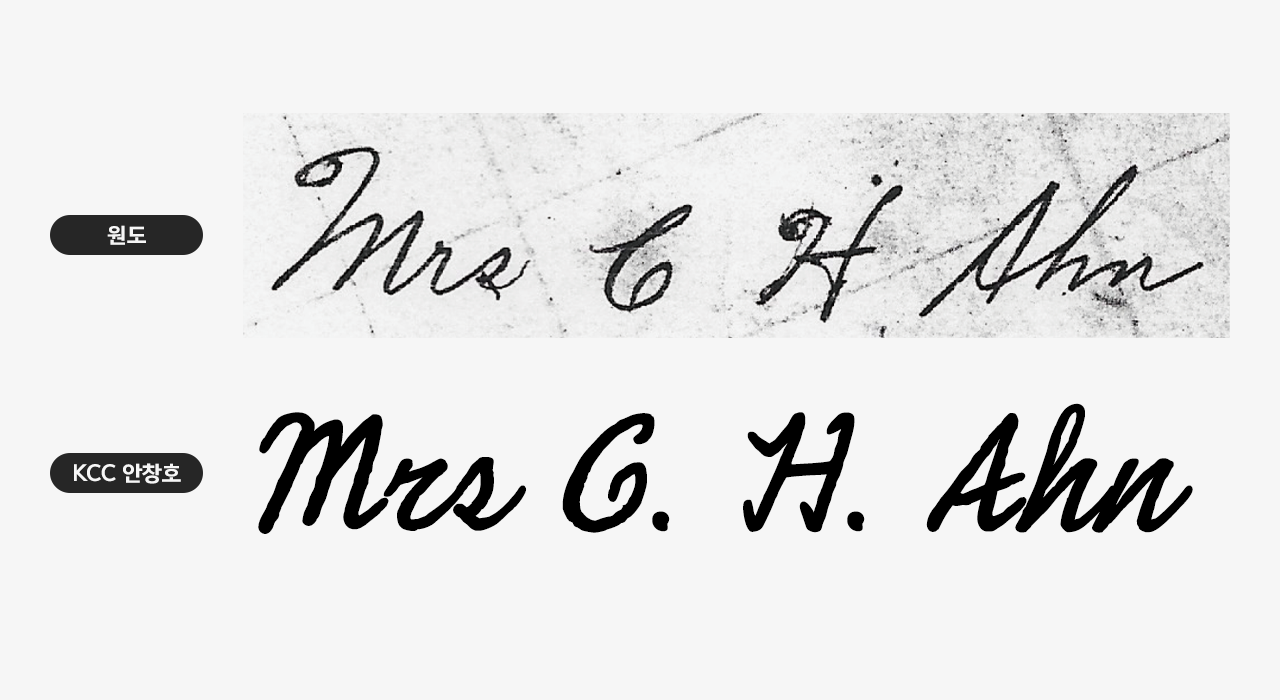 원도
Mrs C H Ahn
KCC 안창호
Mrs C. H. Ahn